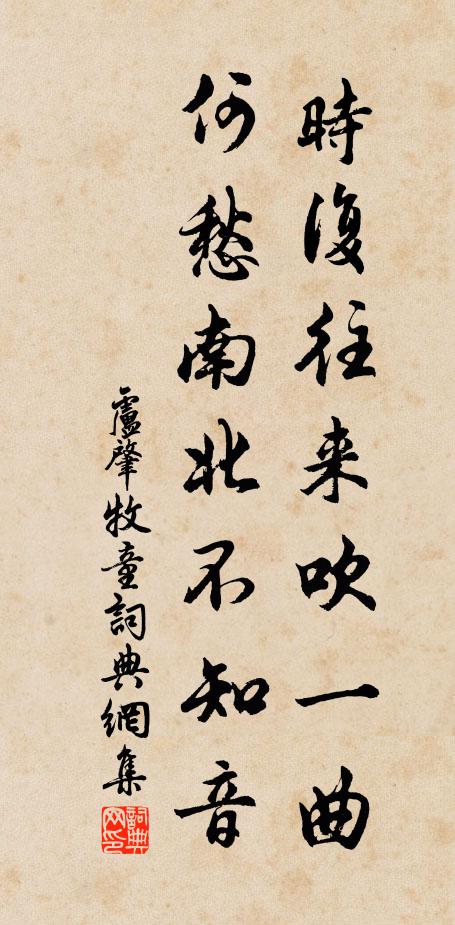 時復往来吹一曲
何愁南北不知音
盧肇牧童詞典網集
詞典網印